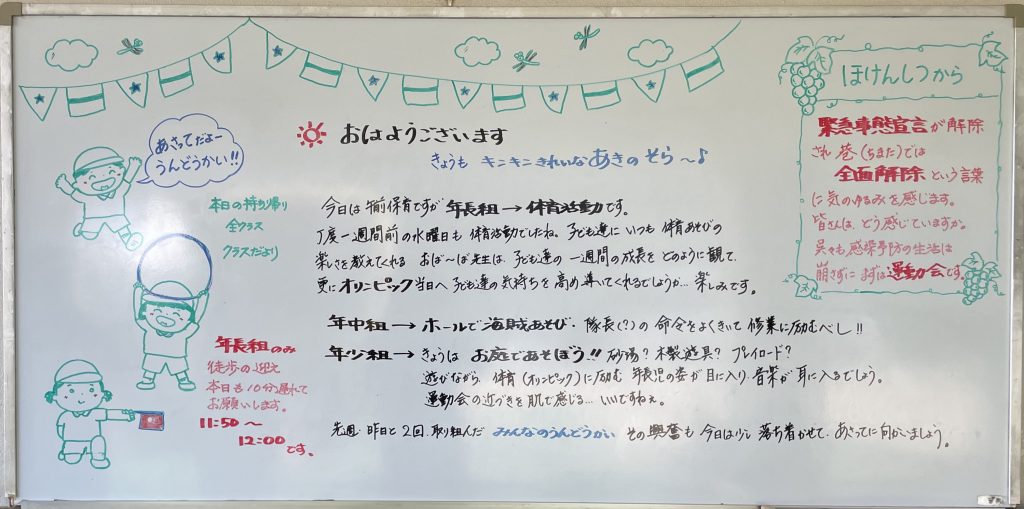 あさってだよー
うんどうかい!!
本日の持ち帰り
全クラス
クラスだより
年長組のみ
徒歩の迎え
本日も10分遅れて
お願いします。
11:50〜
12:00です。
おはようございます
きょうも キンキンきれいなあきのそら〜♪
今日は午前保育ですが 年長組→体育活動です。
丁度一週間前の水曜日も 体育活動でしたね。子ども達に いつも 体育あそびの
楽しさを教えてくれる おば〜ば先生は、子ども達の一週間の成長を どのように観て、
更にオリンピック当日へ子ども達の気持ちを高め導いてくれるでしょうか… 楽しみです。
年中組→ホールで海賊あそび・隊長(?)の命令をよくきいて修業に励むべし!!
年少組→きょうは お庭であそぼう!! 砂場? 木製遊具? プレイロード?
遊びながら 体育(オリンピック)に励む 年長児の姿が目に入り、音楽が耳に入るでしょう。
運動会の近づきを肌で感じる… いいですねぇ。
先週・昨日と2回、取り組んだ みんなのうんどうかい その興奮も 今日は少し落ち着かせて、あさってに向かいましょう。
ほけんしつから
緊急事態宣言が解除
され 巷(ちまた)では
全面解除という言葉
に気のゆるみを感じます。
皆さんは、どう感じていますか。
呉々も感染予防の生活は
崩さずに まずは運動会です。